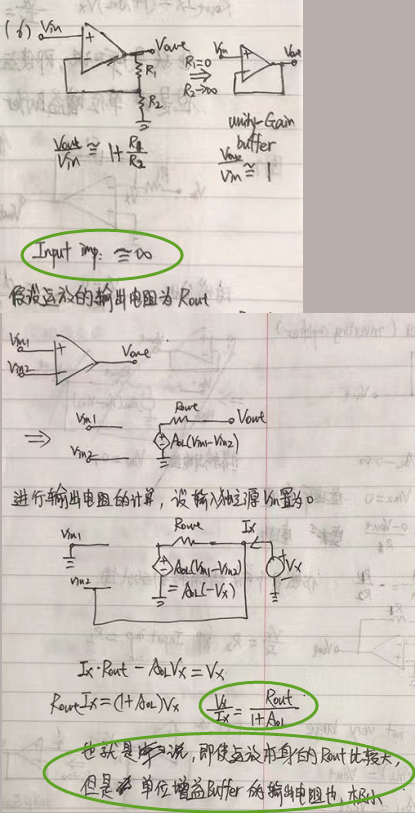 (6) Vin + Vout
R1 R1=0 Vin + Vout
R2 R2→∞
Vout/Vin ≅ 1+R1/R2
unity-Gain
buffer
Vout/Vin ≅ 1
Input imp: ≅ ∞
假设运放的输出电阻为 Rout
Vin1 +
Vin2 - Vout
Rout
Vin1 Vout
⇒ AOL(Vin1-Vin2)
Vin2
进行输出电阻的计算，设输入独立源 Vin 置为0
Vin1 Rout Ix
AOL(Vin1-Vin2) Vx
Vin2 = AOL(-Vx)
Ix·Rout - AOLVx = Vx
Rout Ix = (1+AOL)Vx Vx/Ix = Rout/1+AOL
也就是说，即使运放本身的Rout比较大，
但是 单位增益Buffer的输出电阻也极小